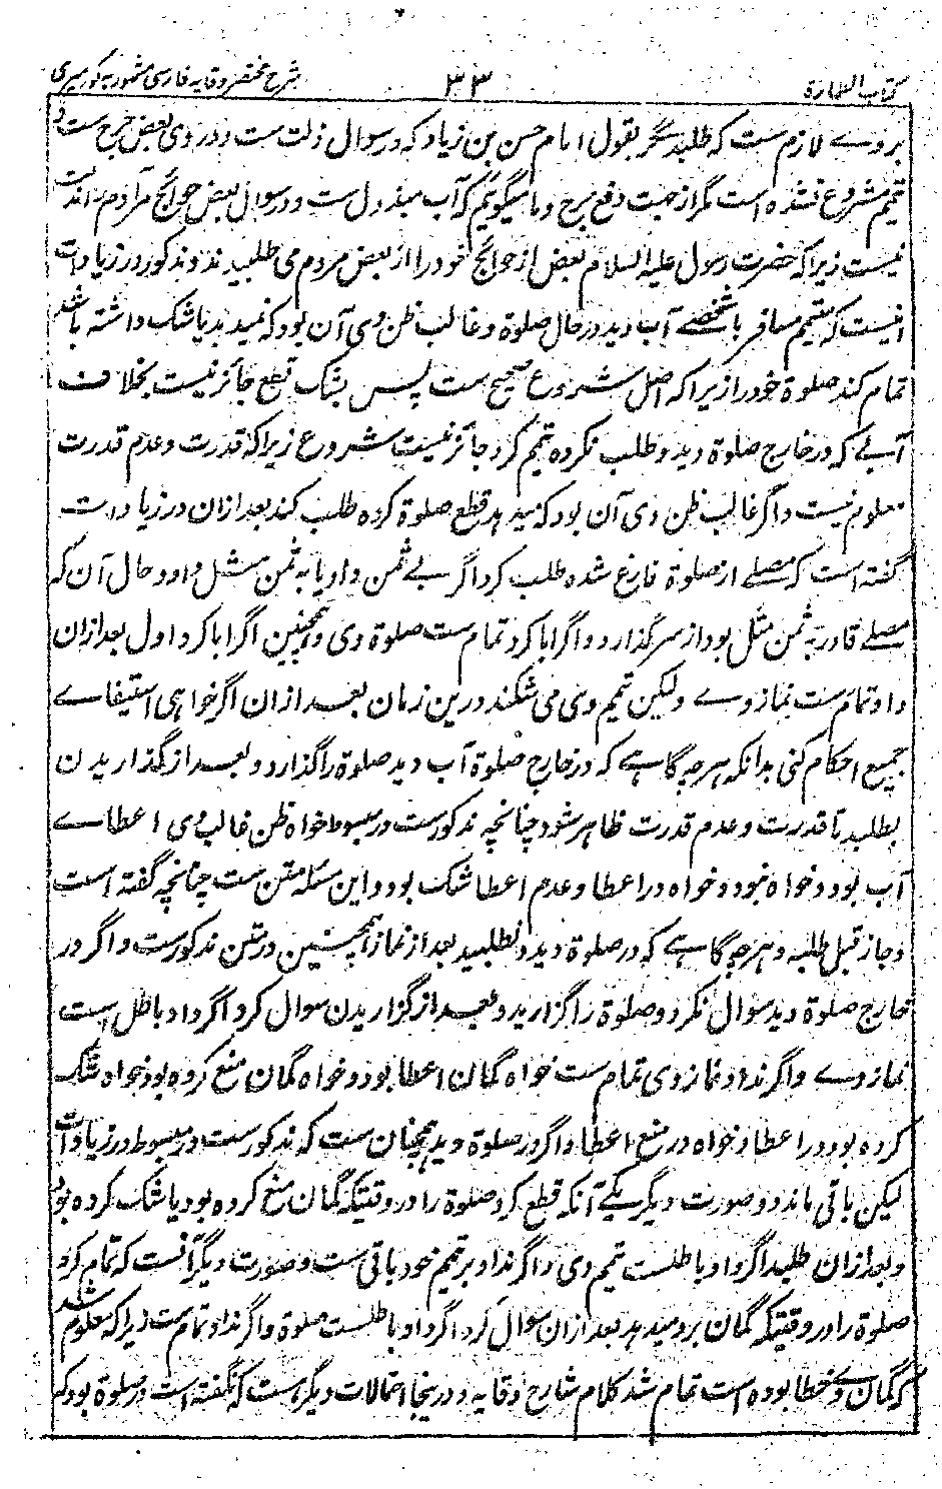 کتاب الطهارة ۳۳ شرح مختصر وقایه فارسی مشهور به کور میری
بروے لازم ست که طلبد مگر بقول امام حسن بن زیاد که در سوال ذلت ست و در وی بعض حرج ست و
تیمم مشروع نشده است مگر از جهت دفع حرج و ما میگویم که آب مبذول ست و در سوال بعض حوائج مر آدم را مذلت
نیست زیرا که حضرت رسول علیه السلام بعض از حوائج خود را از بعض مردم می طلبیدند و مذکور در زیادات
انیست که متیمم مسافر با شخصے آب دید در حال صلوة و غالب ظن وی آن بود که نمیدهد یا شک داشته باشد
تمام کند صلوة خود را زیرا که اصل شروع صحیح ست پس بشک قطع جائز نیست بخلاف
آبے که در خارج صلوة دید و طلب نکرده تیمم کرد جائز نیست شروع زیرا که قدرت و عدم قدرت
معلوم نیست و اگر غالب ظن وی آن بود که میدهد قطع صلوة کرده طلب کند بعد ازان در زیادات
گفته است که مصلے از صلوة فارغ شده طلب کرد اگر بے ثمن داد یا به ثمن مثل داد و حال آن که
مصلے قادر به ثمن مثل بود از سر گذارد و اگر ابا کرد تمام ست صلوة وی و همچنین اگر ابا کرد اول بعد ازان
داد تمام ست نماز وے ولیکن تیمم وی می شکند درین زمان بعد ازان اگر خواهی استیفاے
جمیع احکام کنی بدانکه هر چه گاهے که در خارج صلوة آب دید صلوة را گذارد و بعد از گذاریدن
بطلبید تا قدرت و عدم قدرت ظاهر شود چنانچه مذکورست در مبسوط خواه ظن غالب وی اعطاے
آب بود و خواه نبود و خواه در اعطا و عدم اعطا شک بود و این مسئله متن ست چنانچه گفته است
و جاز قبل طلبه و هر چه گاهے که در صلوة دید و نطلبید بعد از نماز همچنین در متن مذکورست و اگر در
خارج صلوة دید سوال نکرد و صلوة را گزارید و بعد از گزاریدن سوال کرد اگر داد باطل است
نماز وے و اگر نداد نماز وی تمام ست خواه گمان اعطا بود و خواه گمان منع کرده بود خواه شک
کرده بود در اعطا و خواه در منع اعطا و اگر در صلوة دید همچنان ست که مذکورست در مبسوط در زیادات
لیکن باقی ماند دو صورت دیگر یکے آنکه قطع کرد صلوة را در وقتیکه گمان منع کرده بود یا شک کرده بود
و بعد ازان طلبید اگر داد باطلست تیمم وی و اگر نداد بر تیمم خود باقی ست و صورت دیگر آنست که تمام کرد
صلوة را در وقتیکه گمان برد میدهد بعد ازان سوال کرد اگر داد باطلست صلوة و اگر نداد تمام ست زیرا که معلوم شد
که گمان وے خطا بوده است تمام شد کلام شارح وقایه و درینجا احتمالات دیگر هست که نگفته است در صلوة بود که